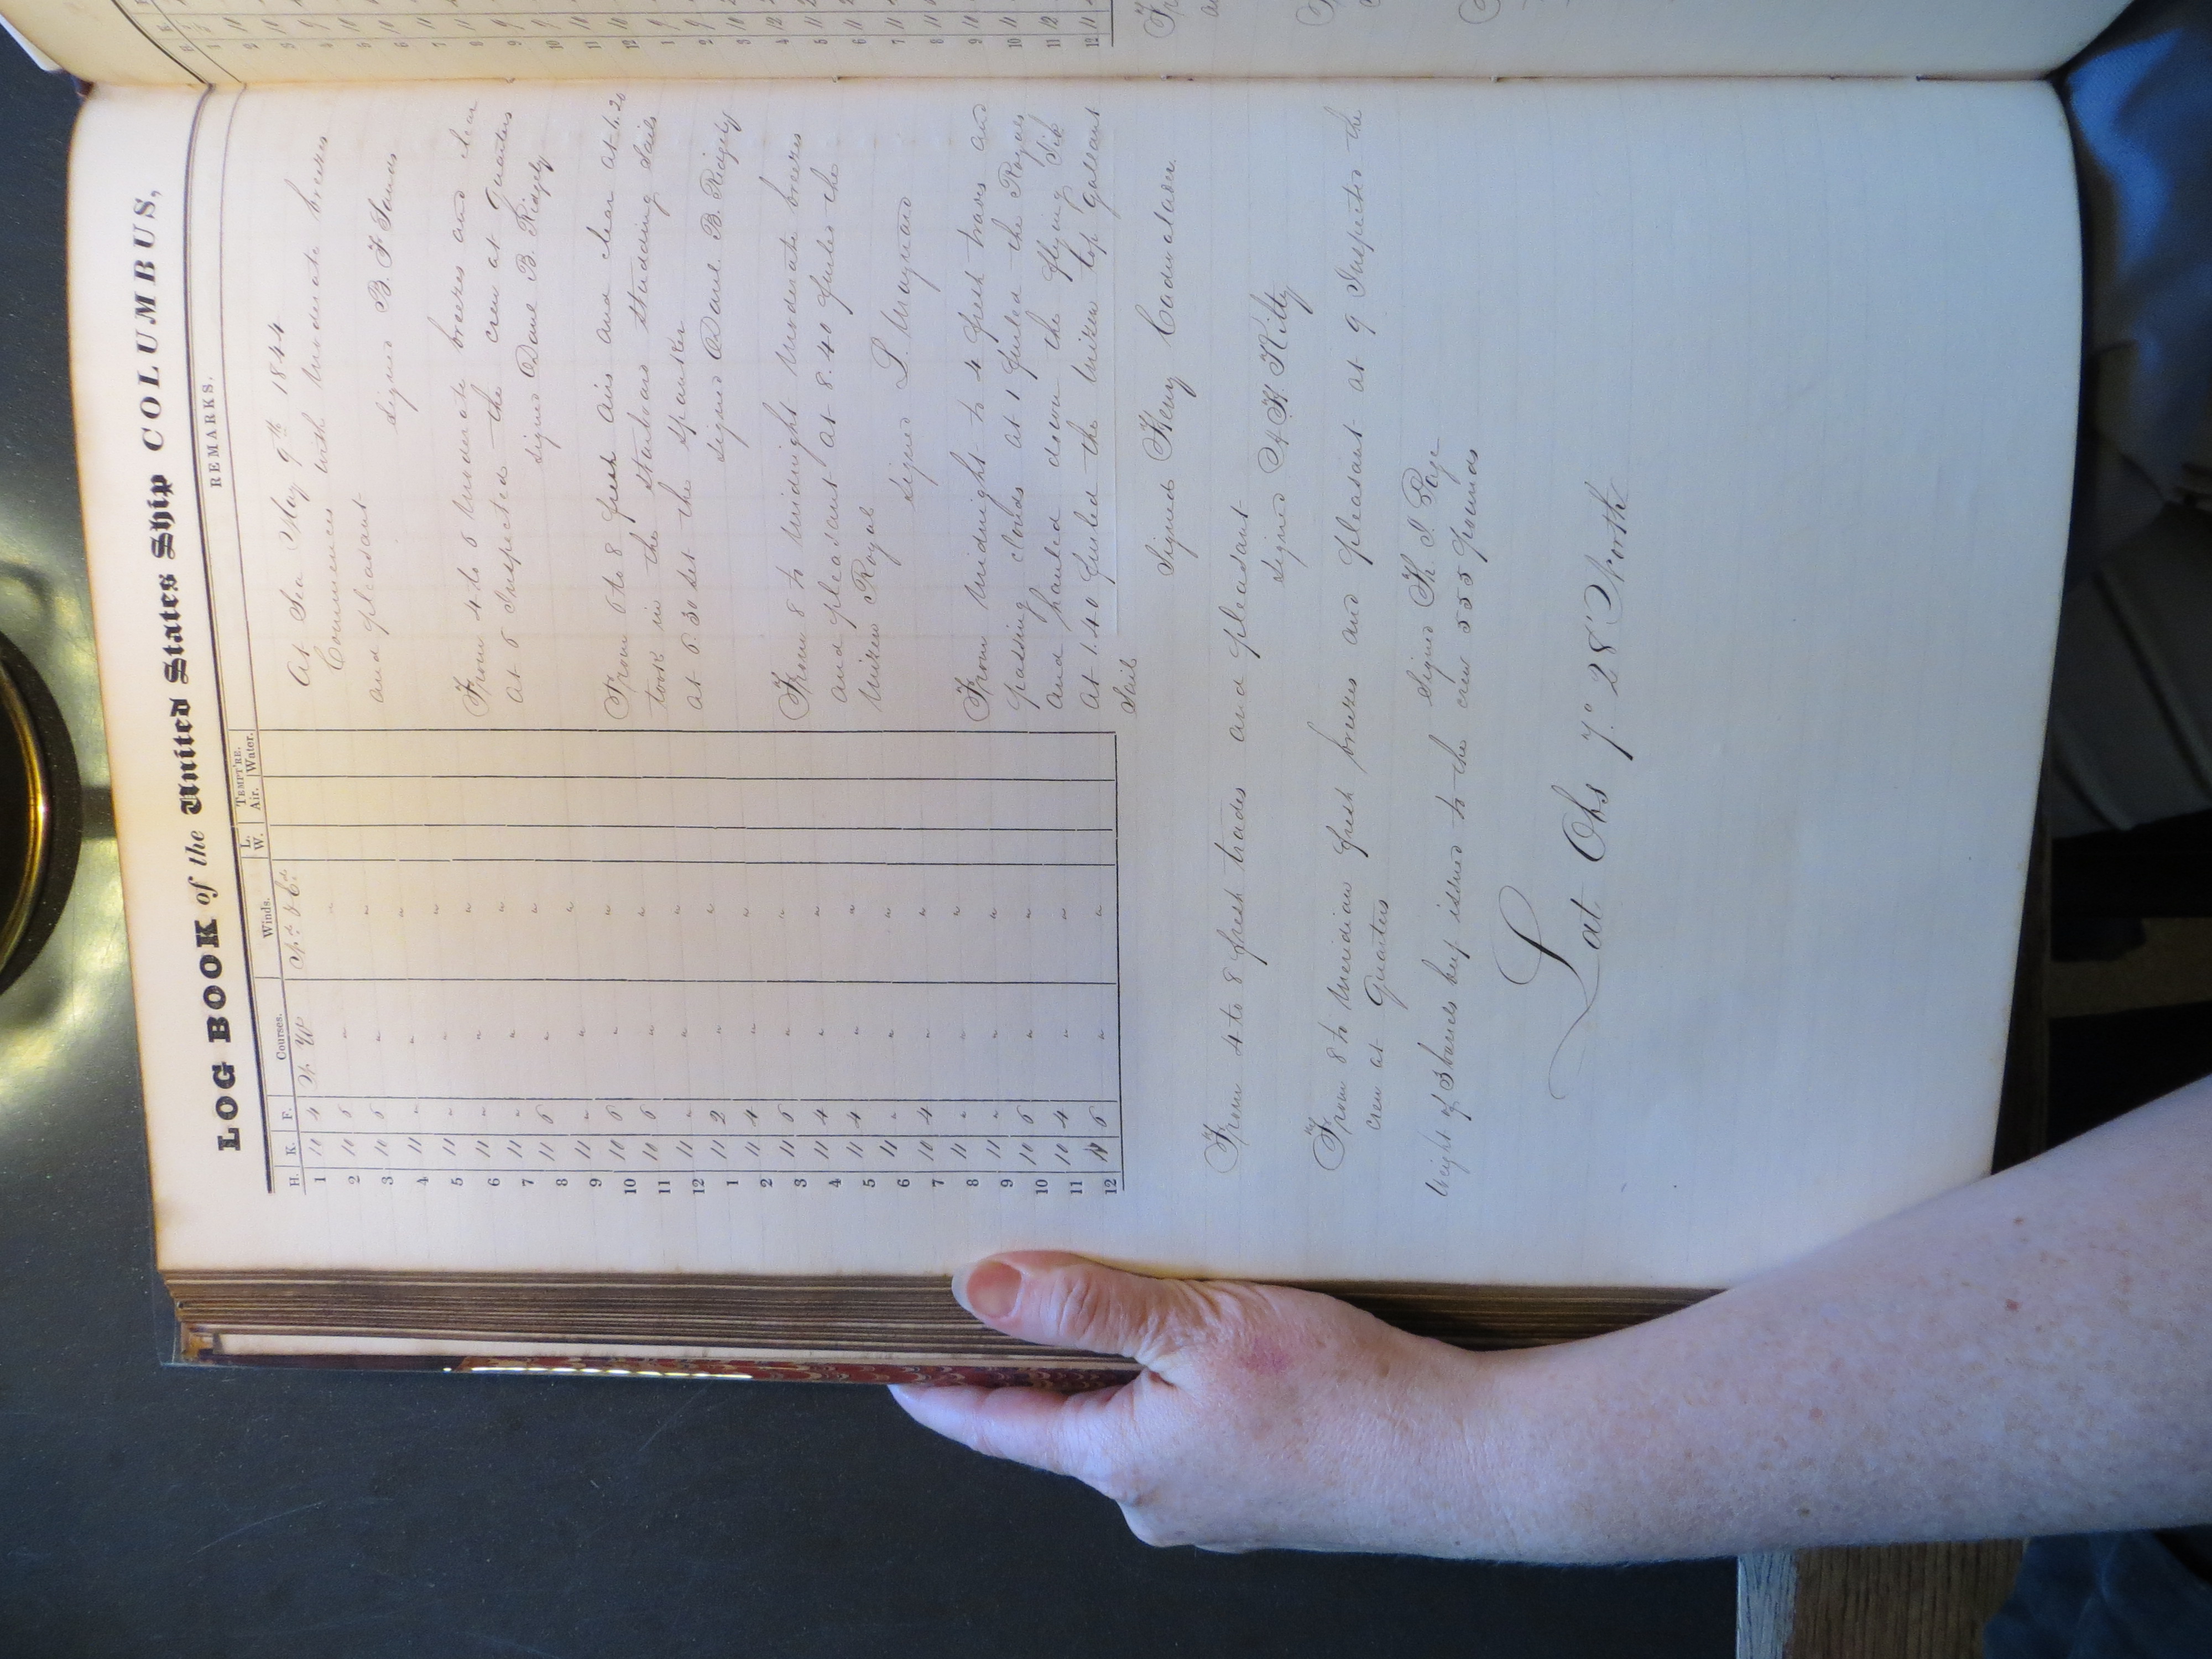 LOG BOOK of the United States Ship COLUMBUS,
REMARKS.
H. K. F. Courses. Winds. L. W. TEMPT'RE. Air. Water.
1 11 4 N. W
2 10 6 " "
3 10 6 " "
4 11 " " "
5 11 " " "
6 11 " " "
7 11 " " "
8 11 6 " "
9 11 " " "
10 10 6 " "
11 10 6 " "
12 11 " " "
1 11 2 " "
2 11 4 " "
3 10 6 " "
4 11 4 " "
5 11 4 " "
6 11 " " "
7 10 4 " "
8 11 " " "
9 11 " " "
10 10 6 " "
11 10 4 " "
12 6 " "
At Sea May 9th 1844
Commences with Moderate breezes
and pleasant
signed B. F. Sands
From 4 to 6 Moderate breezes and clear
At 6 Inspected the crew at Quarters
signed Danl B. Ridgely
From 6 to 8 fresh airs and clear at 6.20
took in the starboard studding sails
at 6.30 set the Spanker
signed Danl. B. Ridgely
From 8 to Midnight Moderate breezes
and pleasant at 8.40 furled the
Mizen Royal
signed L. Maynard
From Midnight to 4 fresh trades and
passing clouds at 1 furled the Royals
and hauled down the flying Jib
At 1.40 furled the Mizen top Gallant
Sail
Signed Henry Cadwalader
From 4 to 8 fresh trades and pleasant
signed A. H. Kilty
From 8 to Meridian fresh breezes and pleasant at 9 Inspected the
crew at Quarters
Signed Th. J. Page
Weight of 3 barrels beef issued to the crew 555 pounds
Lat Obs 7° 28' North